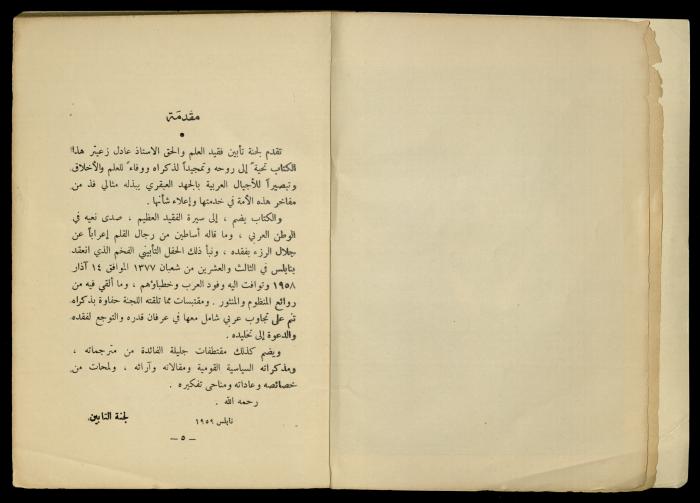 مقدمة
تقدم لجنة تأبين فقيد العلم والحق الاستاذ عادل زعيتر هذا
الكتاب تحيةً إلى روحه وتمجيداً لذكراه ووفاءً للعلم والأخلاق
وتبصيراً للأجيال العربية بالجهد العبقري يبذله مثالي فذ من
مفاخر هذه الأمة في خدمتها وإعلاء شأنها .
والكتاب يضم ، إلى سيرة الفقيد العظيم ، صدى نعيه في
الوطن العربي ، وما قاله أساطين من رجال القلم إعراباً عن
جلال الرزء بفقده ، ونبأ ذلك الحفل التأبيني الفخم الذي انعقد
بنابلس في الثالث والعشرين من شعبان ١٣٧٧ الموافق ١٤ آذار
١٩٥٨ وتوافت اليه وفود العرب وخطباؤهم ، وما ألقي فيه من
روائع المنظوم والمنثور . ومقتبسات مما تلقته اللجنة حفاوة بذكراه
تنم على تجاوب عربي شامل معها في عرفان قدره والتوجع لفقده
والدعوة إلى تخليده .
ويضم كذلك مقتطفات جليلة الفائدة من مترجماته ،
ومذكراته السياسية القومية ومقالاته وآرائه ، ولمحات من
خصائصه وعاداته ومناحي تفكيره .
رحمه الله .
نابلس ١٩٥٩ لجنة التأبين
— ٥ —